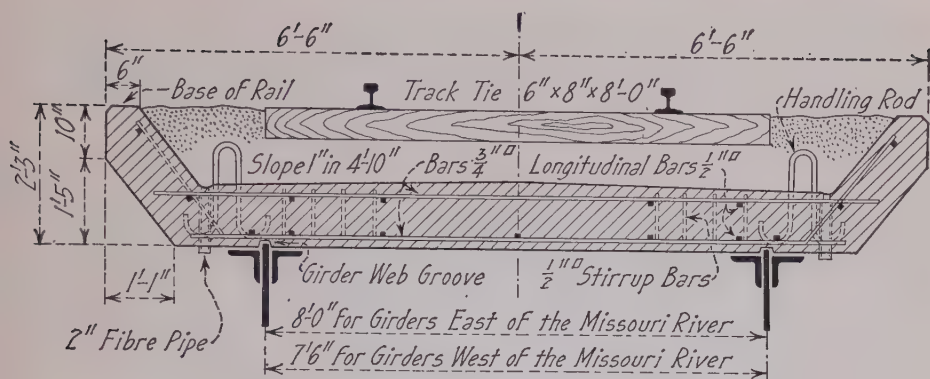 6'-6" 6'-6"
6"
Base of Rail
Track Tie 6"×8"×8'-0"
Handling Rod
2'-3"
10"
1'-5"
Slope 1" in 4'-10"
Bars 3/4"□
Longitudinal Bars 1/2"□
1'-1"
Girder Web Groove
1/2"□ Stirrup Bars
2" Fibre Pipe
8'-0" for Girders East of the Missouri River
7'6" for Girders West of the Missouri River